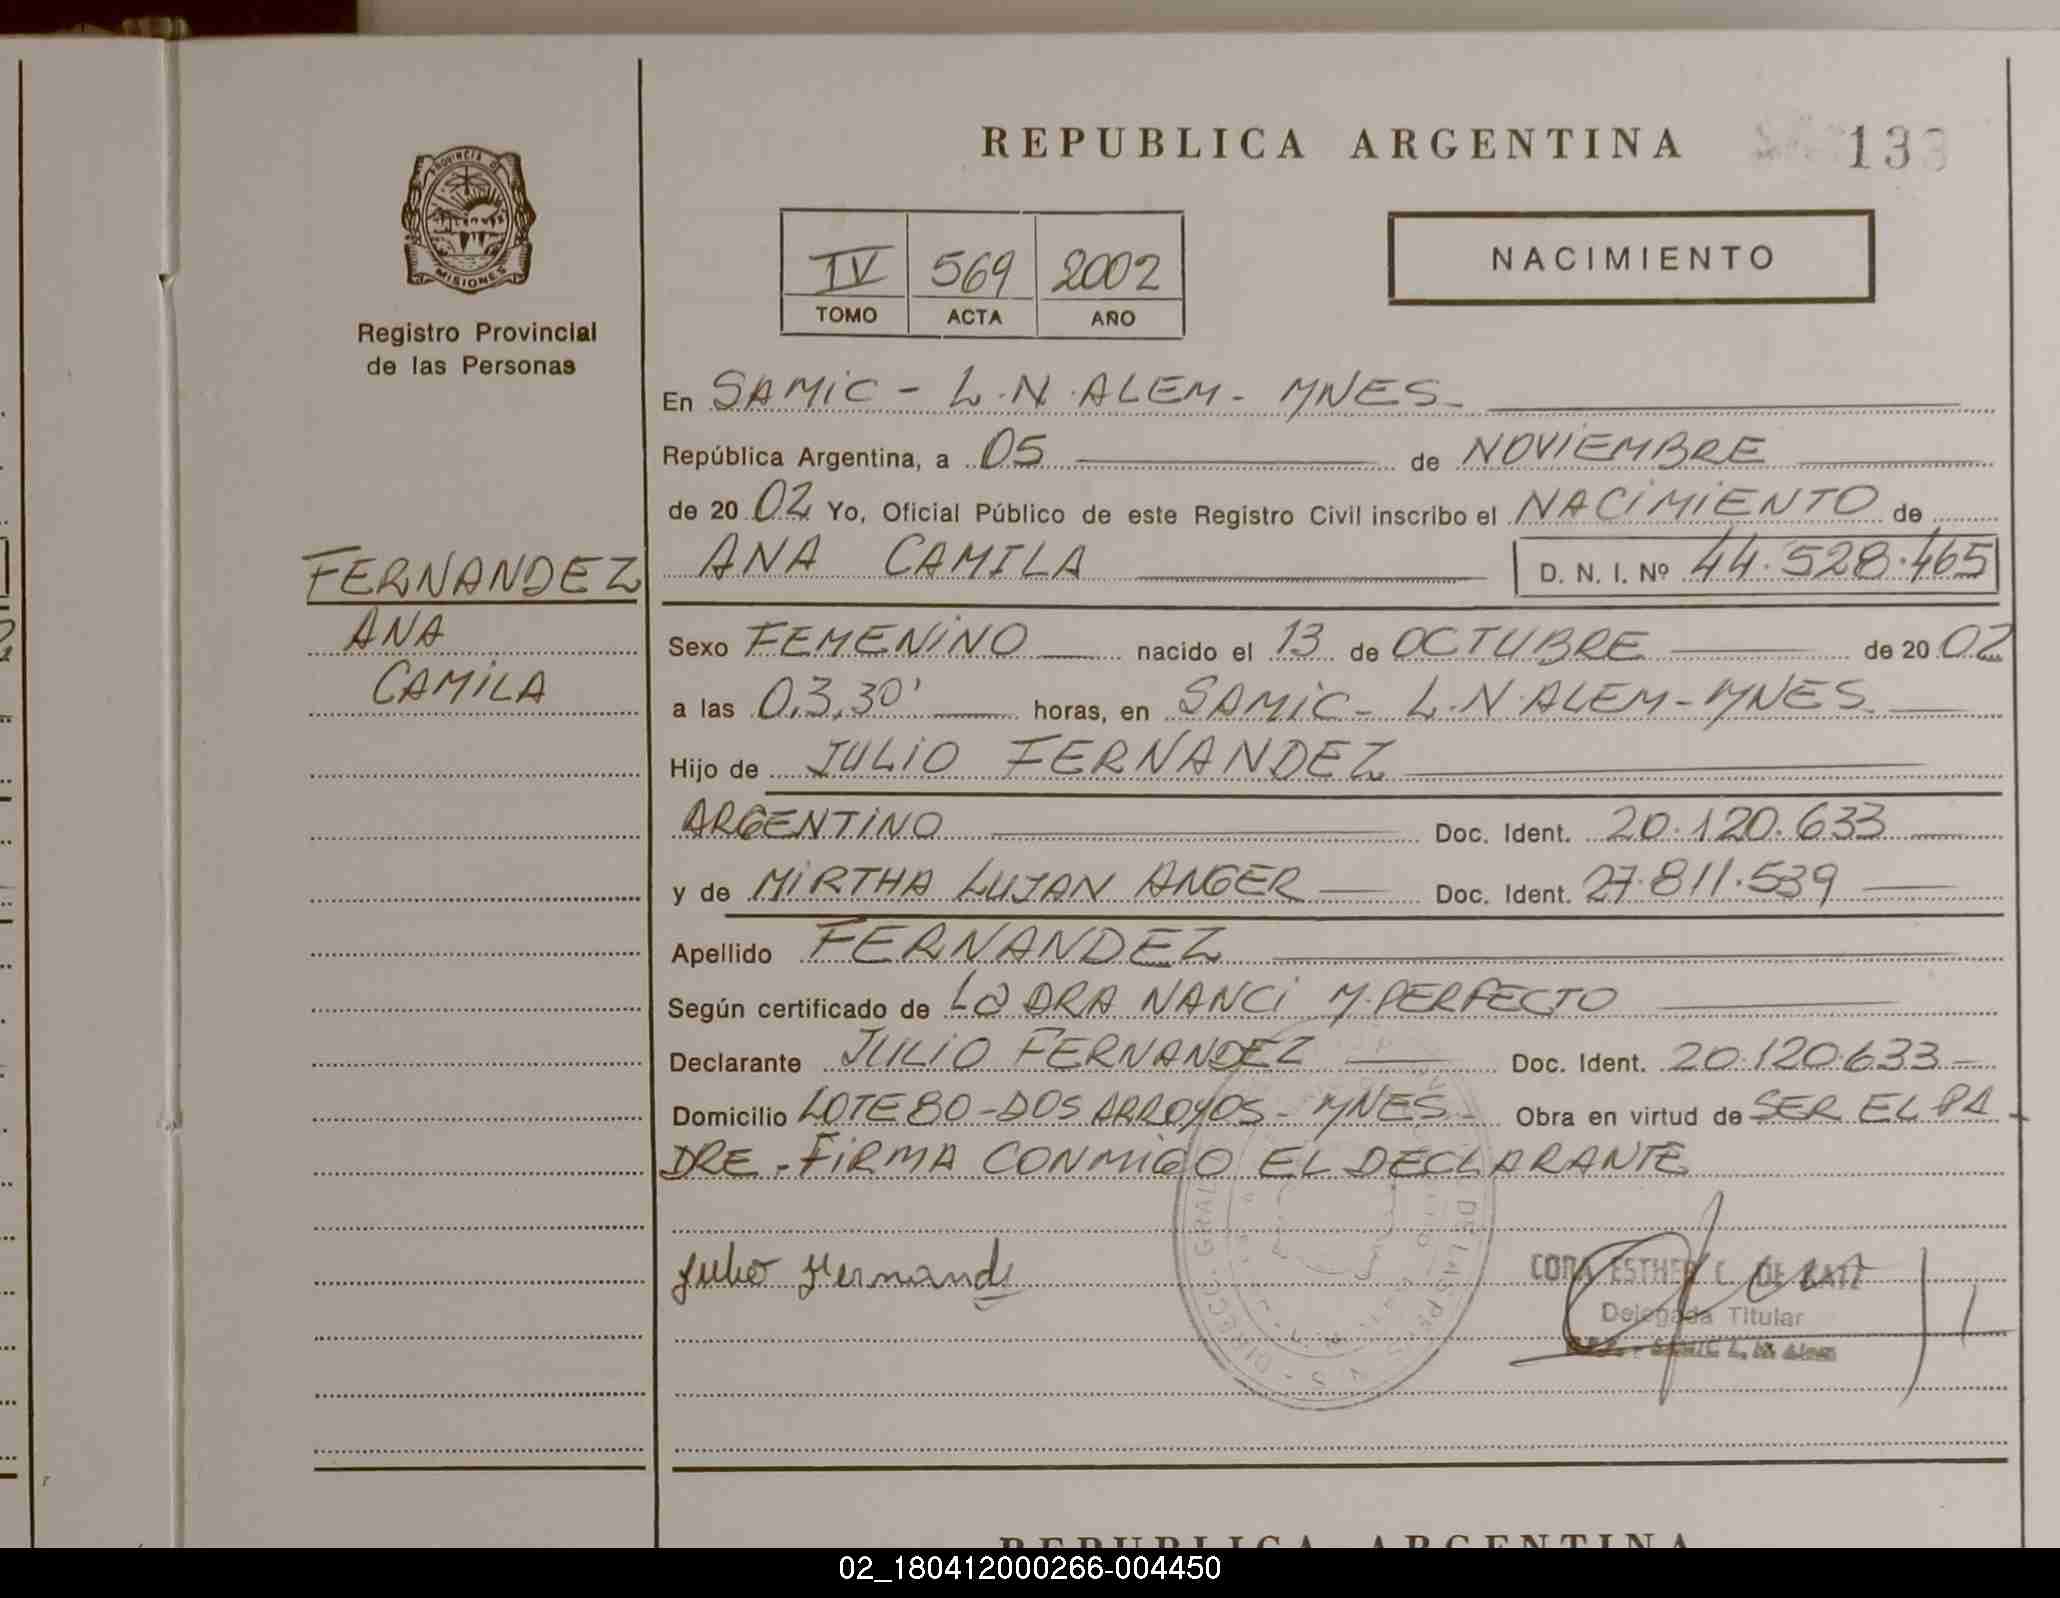 REPUBLICA ARGENTINA
133
PROVINCIA DE
MISIONES
Registro Provincial
de las Personas
IV 569 2002
TOMO ACTA AÑO
NACIMIENTO
En SAMIC - L.N.ALEM - MNES -
República Argentina, a 05 de NOVIEMBRE
de 2002 Yo, Oficial Público de este Registro Civil inscribo el NACIMIENTO de
ANA CAMILA D. N. I. Nº 44.528.465
FERNANDEZ
ANA
CAMILA
Sexo FEMENINO nacido el 13 de OCTUBRE de 2002
a las 03,30' horas, en SAMIC - L.N.ALEM - MNES
Hijo de JULIO FERNANDEZ
ARGENTINO Doc. Ident. 20.120.633
y de MIRTHA LUJAN ANGER Doc. Ident. 27.811.539
Apellido FERNANDEZ
Según certificado de La DRA NANCI M.PERFECTO
Declarante JULIO FERNANDEZ Doc. Ident. 20.120.633
Domicilio LOTE 80 - DOS ARROYOS - MNES - Obra en virtud de SER EL PA
DRE . FIRMA CONMIGO EL DECLARANTE
Julio Fernand
CORA ESTHER C. DE
Delegada Titular
SAMIC L. N. Alem
REPUBLICA ARGENTINA
02_180412000266-004450